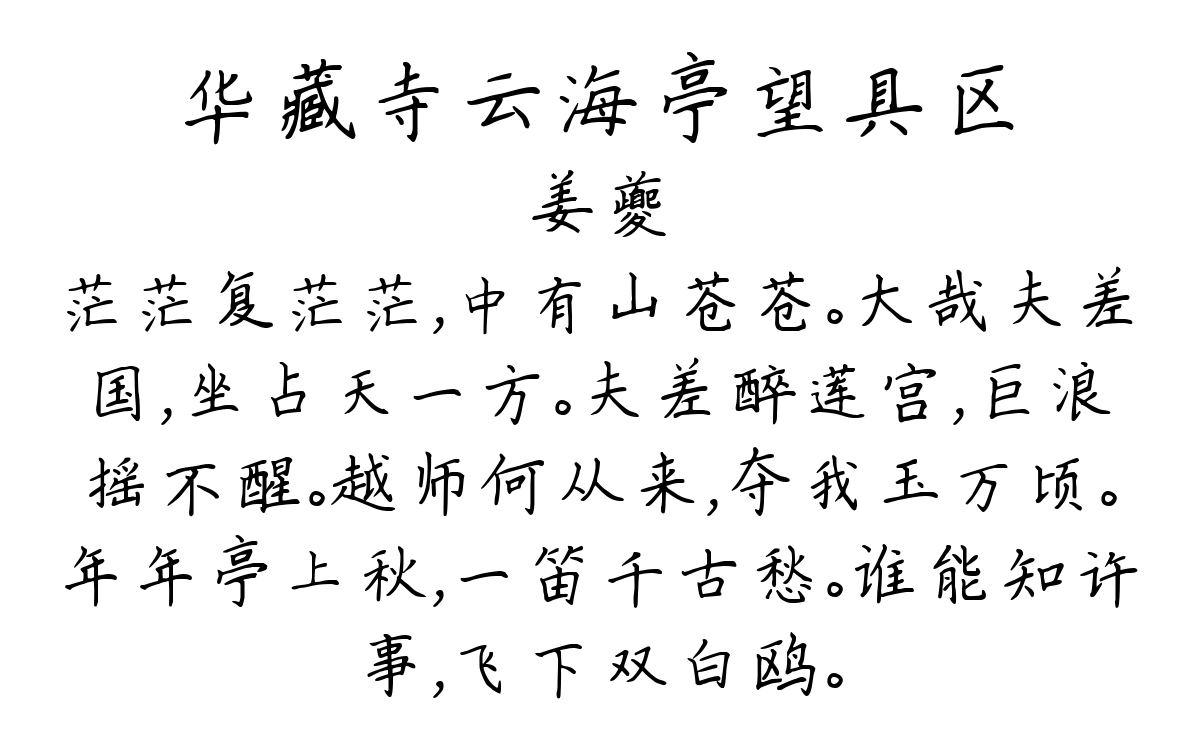 华藏寺云海亭望具区
姜夔
茫茫复茫茫,中有山苍苍。大哉夫差
国,坐占天一方。夫差醉莲宫,巨浪
摇不醒。越师何从来,夺我玉万顷。
年年亭上秋,一笛千古愁。谁能知许
事,飞下双白鸥。